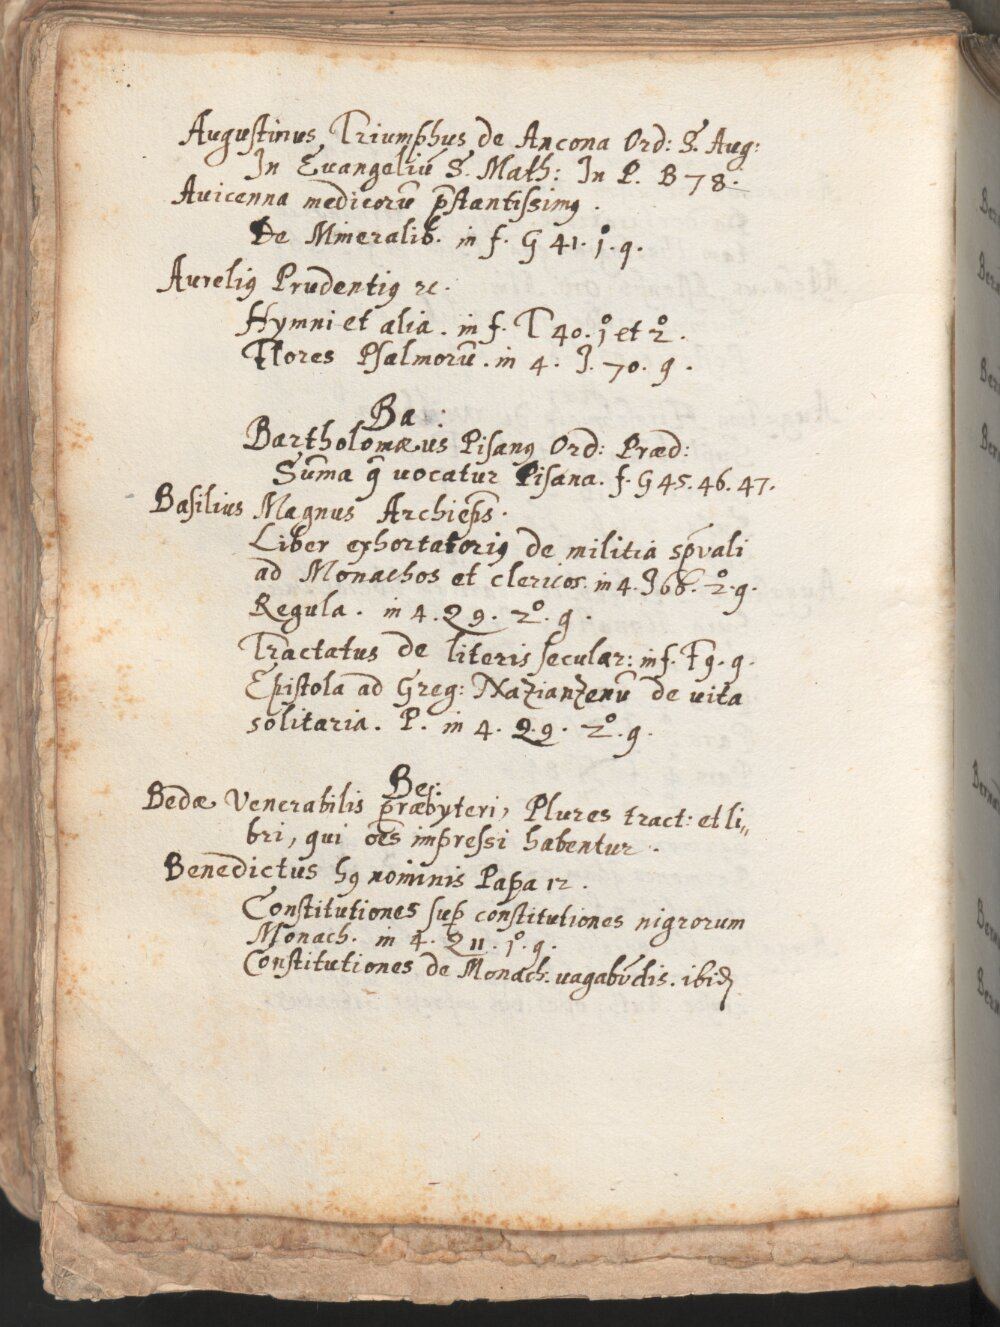 Augustinus Triumphus de Ancona Ord: S. Aug:
In Euangeliū S. Math: In P. B 78.
Auicenna medicorū p̄stantissimꝰ.
De Mineralib. in f. G 41. 1º. q.
Aureliꝰ Prudentiꝰ ꝛc.
Hymni et alia. in f. T 40. 1º et 2º.
Flores Psalmorū. in 4. J. 70. q.
Ba:
Bartholomæus Pisanꝰ Ord: Præd:
Sum̄a q̄ uocatur Pisana. f. G 45. 46. 47.
Basilius Magnus Archiep̄s.
Liber exhortatoriꝰ de militia sp̄uali
ad Monachos et clericos. in 4. J 68. 2º. q.
Regula. in 4. Q 9. 2º. q.
Tractatus de literis secular: in f. F 9. q.
Epistola ad Greg: Nazianzenū de uita
solitaria. P. in 4. Q 9. 2º. q.
Be:
Bedæ Venerabilis præbyteri, Plures tract: et li„
bri, qui oēs impressi habentur.
Benedictus hꝰ nominis Papa 12.
Constitutiones suꝑ constitutiones nigrorum
Monach. in 4. Q 11. 1º. q.
Constitutiones de Monach. uagabūdis. ibid